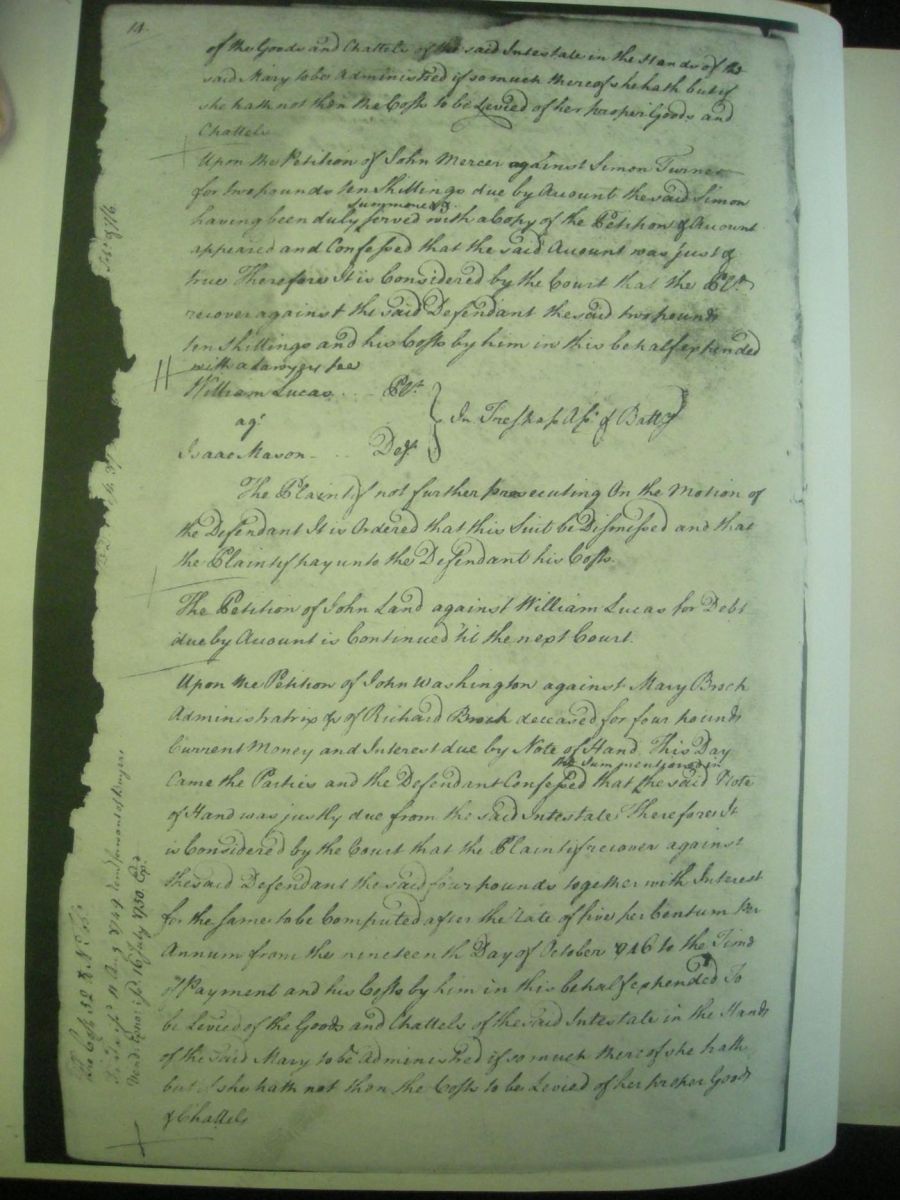 14
of the Goods and Chattels of the said Intestate in the Hands of the
said Mary to be Administred if so much thereof she hath but if
she hath not then the Costs to be Levied of her proper Goods and
Chattels
Upon the Petition of John Mercer against Simon Turner
for two pounds ten Shillings due by Account the said Simon
summoned &
having been duly served with a Copy of the Petition & Account
appeared and Confessed that the said Account was just &
true Therefore It is Considered by the Court that the Plt.
recover against the said Defendant the said two pounds
ten Shillings and his Costs by him in this behalf expended
with a Lawyers fee
William Lucas . . . Plt.
agt.
In Trespass Ass. & Battry
Isaac Mason . . . Deft.
The Plaintif not further prosecuting On the Motion of
the Defendant It is Ordered that this Suit be Dismissed and that
the Plaintif pay unto the Defendant his Costs.
The Petition of John Land against William Lucas for Debt
due by Account is Continued 'til the next Court.
Upon the Petition of John Washington against Mary Brock
Administratrix &c of Richard Brock deceased for four pounds
Current Money and Interest due by Note of Hand This Day
Came the Parties and the Defendant Confessed that the said Note
of Hand was justly due from the said Intestate Therefore It
is Considered by the Court that the Plaintif recover against
the said Defendant the said four pounds together with Interest
for the same to be Computed after the rate of five per Centum Per
Annum from the nineteenth Day of October 1746 to the Time
of Payment and his Costs by him in this behalf expended To
be Levied of the Goods and Chattels of the said Intestate in the Hands
of the Said Mary to be Administred if so much thereof she hath
but if she hath not then the Costs to be Levied of her proper Goods
& Chattels